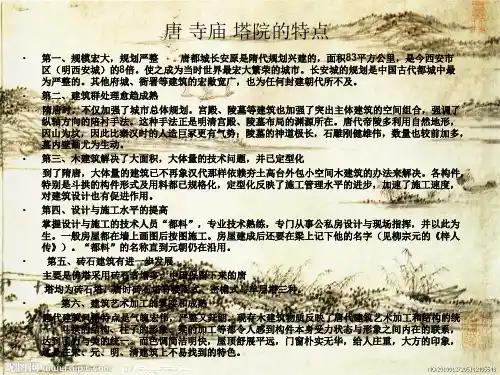 唐 寺庙 塔院的特点
• 第一、规模宏大，规划严整 唐都城长安原是隋代规划兴建的，面积83平方公里，是今西安市
区（明西安城）的8倍。使之成为当时世界最宏大繁荣的城市。长安城的规划是中国古代都城中最
为严整的。其他府城、衙署等建筑的宏敞宽广，也为任何封建朝代所不及。
• 第二、建筑群处理愈趋成熟
• 隋唐时，不仅加强了城市总体规划。宫殿、陵墓等建筑也加强了突出主体建筑的空间组合，强调了
纵轴方向的陪衬手法。这种手法正是明清宫殿、陵墓布局的渊源所在。唐代帝陵多利用自然地形，
因山为坟，因此比秦汉时的人造巨冢更有气势；陵墓的神道极长，石雕刚健雄伟，数量也较前加多，
墓内壁画尤为生动。
• 第三、木建筑解决了大面积，大体量的技术问题，并已定型化
• 到了隋唐，大体量的建筑已不再象汉代那样依赖夯土高台外包小空间木建筑的办法来解决。各构件
特别是斗拱的构件形式及用料都已规格化，定型化反映了施工管理水平的进步，加速了施工速度，
对建筑设计也有促进作用。
• 第四、设计与施工水平的提高
• 掌握设计与施工的技术人员“都料”，专业技术熟练，专门从事公私房设计与现场指挥，并以此为
生。一般房屋都在墙上画图后按图施工。房屋建成后还要在梁上记下他的名字（见柳宗元的《梓人
传》）。“都料”的名称直到元朝仍在沿用。
• 第五、砖石建筑有进一步发展
• 主要是佛塔采用砖石者增多。
塔均为砖石塔。唐时砖石塔
• 第六、建筑艺术加工的真实和成熟
• 唐代建筑风格特点是气魄宏伟，严整又开朗。现存木建筑物反映了唐代建筑艺术加工和结构的统
一，斗拱的结构、柱子的形象、梁的加工等都令人感到构件本身受力状态与形象之间内在的联系，
达到了力与美的统一。而色调简洁明快，屋顶舒展平远，门窗朴实无华，给人庄重，大方的印象，
这是在宋、元、明、清建筑上不易找到的特色。